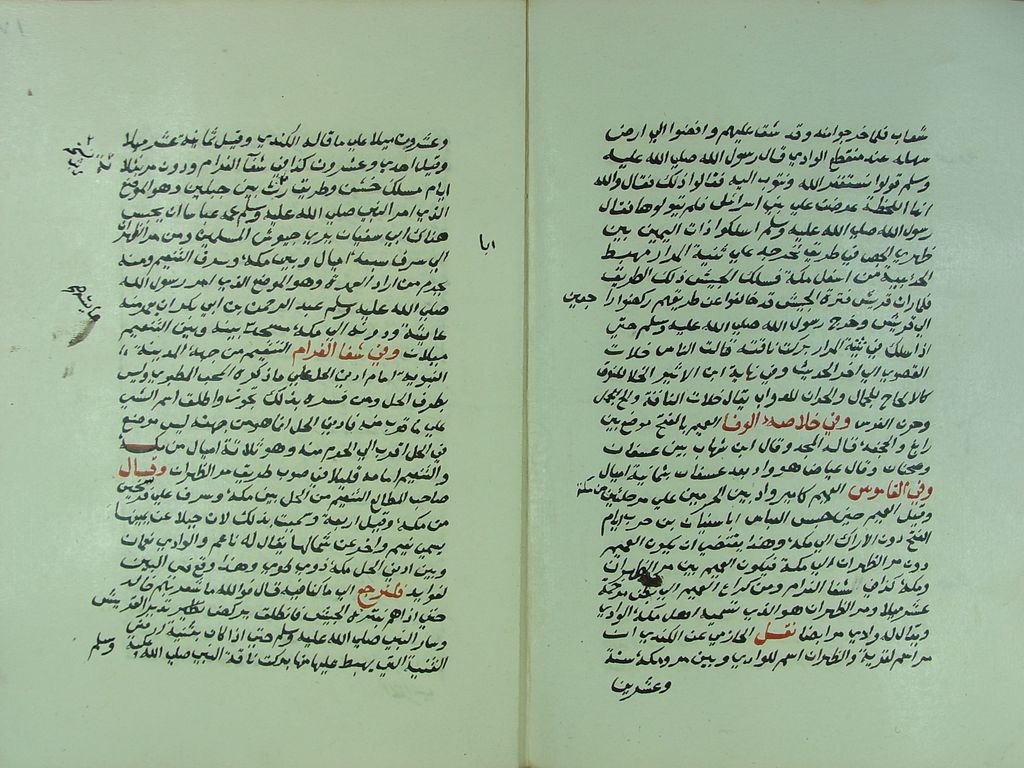 شعاب فلما خرجوا منه وقد شق عليهم وافضوا الي ارض
سهلة عند منقطع الوادي قال رسول الله صلي الله عليه
وسلم قولوا نستغفر الله ونتوب اليه فقالوا ذلك فقال والله
انها اللحطة عرضت علي بني اسرائيل فلم يقولوها فقال
رسول الله صلي الله عليه وسلم اسلكوا ذات اليمين بين
ظهري الحمض في طريق تخرجه علي ثنية المرار مهبط
الحديبية من اسفل مكة فسلك الجيش ذلك الطريق
فلما رات قريش قترة الجيش قد خالفوا عن طريقهم ركضوا راجعين
الي قريش وخرج رسول الله صلي الله عليه وسلم حتي
اذا سلك في ثنية المرار بركت ناقته قالت الناس خلات
القصوي الي اخر الحديث وفي نهاية ابن الاثير الخلا للنوق
كالالحاح للجمال والحران للدواب يقال خلات الناقة والح الجمل
وحرن الفرس وفي خلاصة الوفا الغميم بالفتح موضع بين
رابغ والجحفة قاله المجد وقال ابن شهاب بين عسفان
وضجنان وقال عياض هو واد بعد عسفان بثمانية اميال
وفي القاموس الغميم كامير واد بين الحرمين علي مرحلتين من مكة
وقيل الغميم حيث حبس العباس ابا سفيان بن حرب ايام
الفتح دون الاراك الي مكة وهذا يقتضي ان يكون الغميم
دون مر الظهران الي مكة فيكون الغميم بين مر الظهران
ومكة كذا في شفا الغرام ومن كراع الغميم الي بطن مر خمسة
عشر ميلا ومر الظهران هو الذي تسميه اهل مكة الوادي
ويقال له وادي مر ايضا نقل الحازمي عن الكندي ان
مر اسم لقرية والظهران اسم للوادي وبين مر ومكة ستة
وعشرين
وعشرون ميلا علي ما قاله الكندي وقيل ثمانية عشر ميلا
وقيل احدي وعشرون كذا في شفا الغرام ودون مر بثلاثة
اميال مسلك خشن وطريق بين جبلين وهو الموضع
الذي امر النبي صلي الله عليه وسلم عمه عباسا ان يحبس
هناك ابي سفيان يري جيوش المسلمين ومن مر الظهران
الي سرف سبعة اميال وبين مكة وسرف التنعيم ومنه
يحرم من اراد العمرة وهو الموضع الذي امر رسول الله
صلي الله عليه وسلم عبد الرحمن بن ابي بكر ان يعمر منه
عايشة ودونه الي مكة مسجد بينه وبين التنعيم
ميلان وفي شفا الغرام التنعيم من جهة المدينة
النبوية امام ادني الحل علي ما ذكره المحب الطبري وليس
بطرف الحل ومن فسره بذلك تجوز واطلق اسم الشي
علي ما قرب منه فادني الحل انما هو من جهته ليس موضع
في الحل اقرب الي الحرم منه وهو ثلاثة اميال من مكة
والتنعيم امامه قليلا في صوب طريق مر الظهران وقال
صاحب المطالع التنعيم من الحل بين مكة وسرف علي فرسخين
من مكة وقيل اربعة وسميت بذلك لان جبلا عن يمينها
يسمي نعيم واخر عن شمالها يقال له ناعم والوادي نعمان
وبين ادني الحل مكة ذوي طوي وهذا وقع في البين
لفوايد فلنرجع الي ما كنا فيه قال فوالله ما شعر بهم خالد
حتي اذا هم بقترة الجيش فانطلق يركض نذير القريش
وسار النبي صلي الله عليه وسلم حتي اذا كان بثنية
الثنية التي يهبط عليها منها بركت ناقة النبي صلي الله عليه وسلم
ابا
عايشة